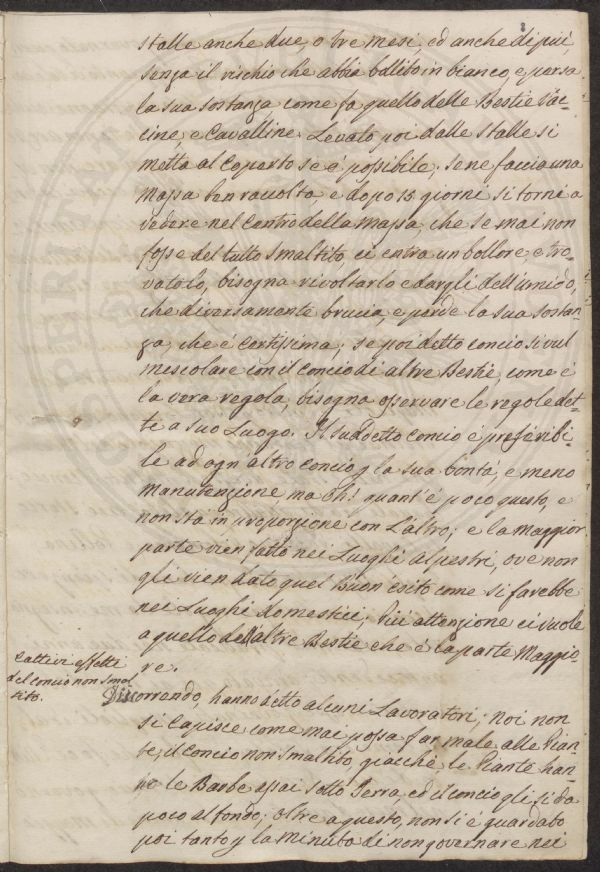 stalle anche due, o tre mesi, ed anche di più,
senza il rischio che abbia bollito in bianco, e persa
la sua sostanza come fa quello delle Bestie Vac-
cine, e Cavalline. Levato poi dalle stalle si
metta al Coperto se è possibile; se ne faccia una
Massa ben raccolta, e dopo 15 giorni si torni a
vedere nel Centro della Massa, che se mai non
fosse del tutto smaltito, ci entra un bollore; e tro-
vatolo, bisogna rivoltarlo e dargli dell'umido,
che diversamente brucia, e perde la sua sostan-
za, che è certissima; se poi detto concio si vul
mescolare con il concio di altre Bestie, come è
la vera regola, bisogna osservare le regole det-
te a suo Luogo. Il suddetto concio è preferibi-
le ad ogn'altro concio p la sua bontà, e meno
Manutenzione ma Oh! quant'è poco questo, e
non sta in proporzione con L'altro; e la Maggior
parte vien fatto nei Luoghi alpestri, ove non
gli vien dato quel Buon'esito come si farebbe
nei Luoghi domestici, Più attenzione ci vuole
a quello dell'altre Bestie che è la parte Maggio-
re.
Cattivi effetti
del Concio non smal
tito.
Discorrendo, hanno detto alcuni Lavoratori; Noi non
si Capisce come mai possa far male alle Pian-
te, il Concio non smaltito, giacchè, le Piante han-
no le Barbe assai sotto Terra, ed il concio gli si da
poco al fondo; oltre a questo, non si è guardato
poi tanto p la minuta di non governare nei